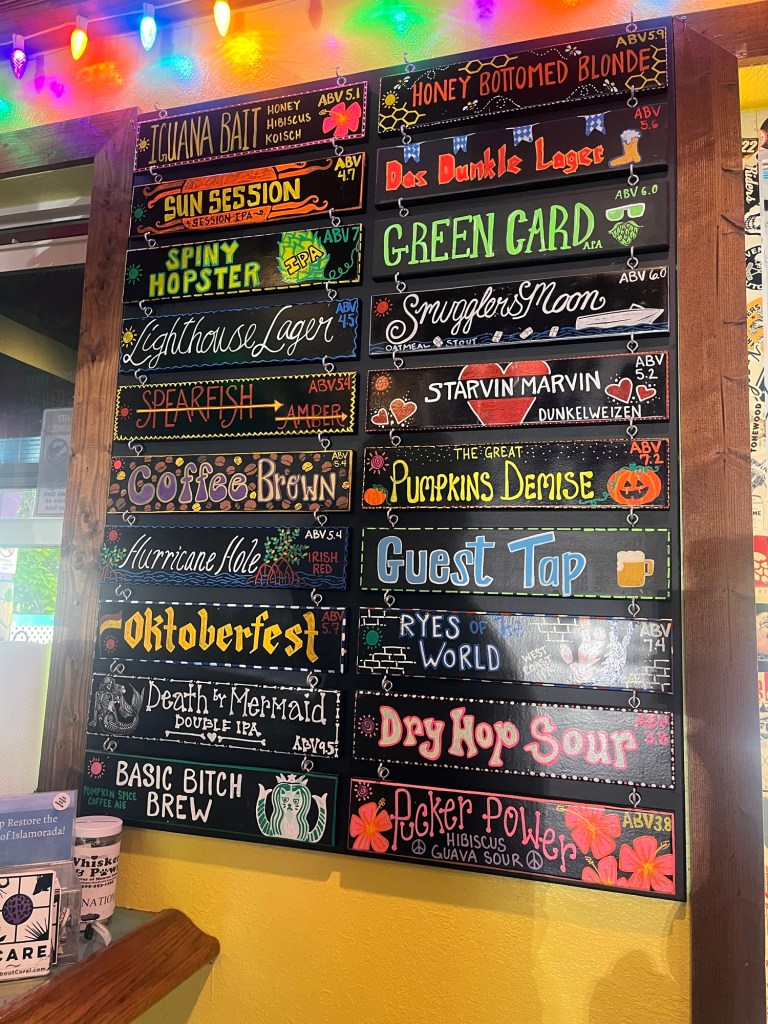 IGUANA BAIT
HONEY
HIBISCUS
KOLSCH
ABV 5.1
SUN SESSION
SESSION IPA
ABV
4.7
SPINY
HOPSTER
IPA
ABV 7
Lighthouse Lager
ABV
4.5
SPEARFISH
AMBER
ABV 5.4
Coffee Brown
ABV
5.4
Hurricane Hole
IRISH
RED
ABV 5.4
Oktoberfest
ABV
5.7
Death by Mermaid
DOUBLE IPA
ABV 9.5
BASIC BITCH
BREW
PUMPKIN SPICE
COFFEE ALE
HONEY BOTTOMED BLONDE
ABV 5.9
Das Dunkle Lager
ABV
5.6
GREEN CARD
APA
ABV 6.0
Smugglers Moon
OATMEAL STOUT
ABV 6.0
STARVIN MARVIN
DUNKELWEIZEN
ABV
5.2
THE GREAT
PUMPKINS DEMISE
ABV
7.2
Guest Tap
RYES OF THE
WORLD
WEST
COAST
ABV
7.4
Dry Hop Sour
ABV
3.8
Pucker Power
HIBISCUS
GUAVA SOUR
ABV 3.8
Restore the
of Islamorada!
CARE
Whisker
& Paws
22
Riders
TONEWOOD